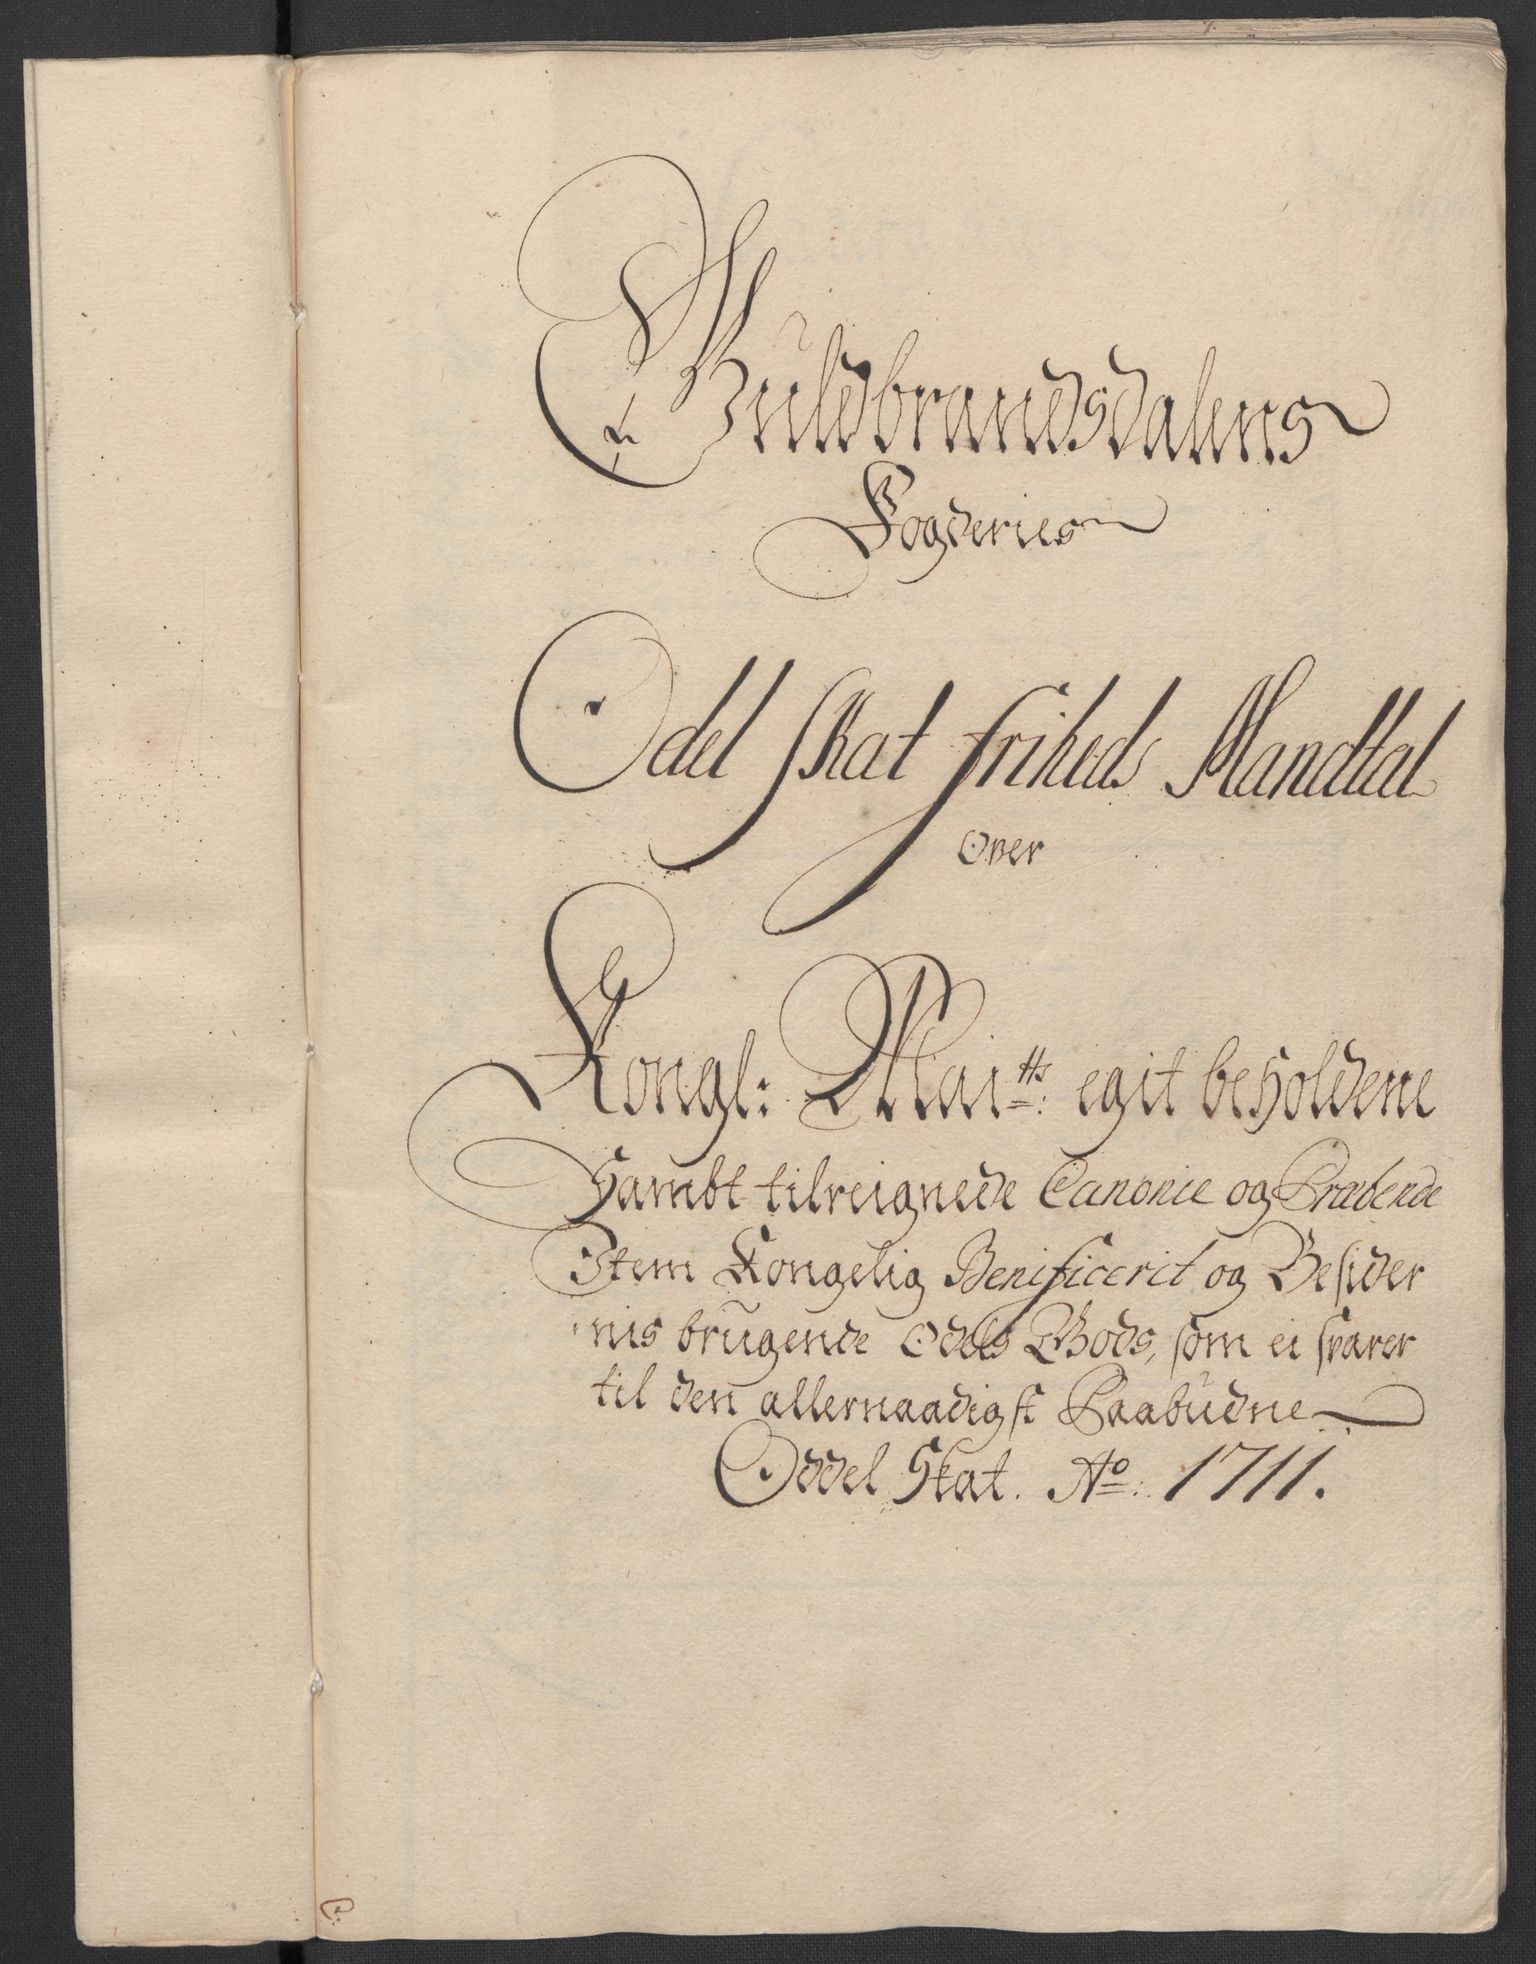 Guldbrandsdalens
Fogderies
Odel Skat friheds Mandtal
Over
Kongl: Mai:tts egit beholdene
Sambt tilreignede Canonie og Præbende
Item Kongelig Benificerit og Besider
nis brugende Odels Gods, som ei svarer
til den allernaadigst Paabudne
Oddel Skat. Ao: 1711.